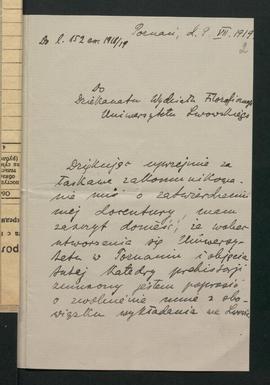 Do l. 152 ex 1918/19
Poznań, d. 9 VII. 1919
2
Do
Dziekanatu Wydziału Filozoficznego
Uniwersytetu Lwowskiego
Dziękując uprzejmie za
łaskawe zakomunikowa-
nie mi o zatwierdzeniu
mej docentury, mam
zaszczyt donieść, że wobec
utworzenia się Uniwersy-
tetu w Poznaniu i objęcia
tutej katedry prehistorji
zmuszony jestem poprosić
o zwolnienie mnie z obo-
wiązku wykładania we Lwowie